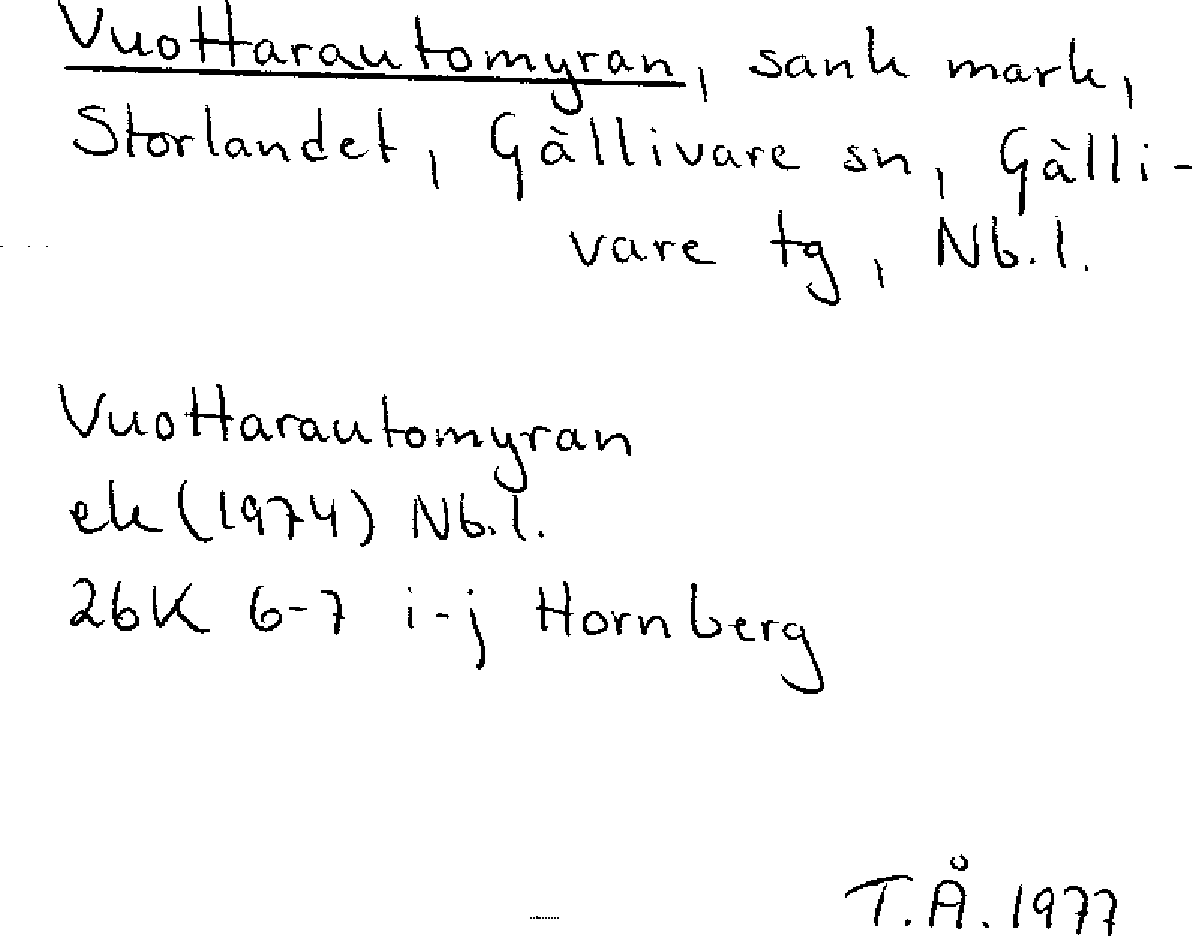 Vuottarautomyran, sank mark,
Storlandet, Gällivare sn, Gälli-
vare tg, Nb.l.
Vuottarautomyran
ek (1974) Nb.l.
26K 6-7 i-j Hornberg
T.Å. 1977